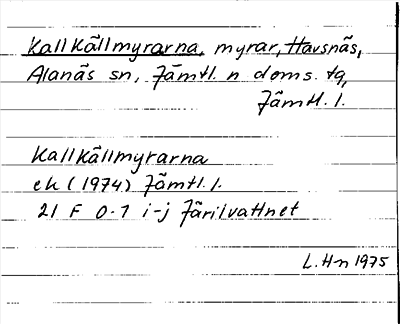 Kallkällmyrarna, myrar, Havsnäs,
Alanäs sn, Jämtl. n doms. tq,
Jämtl. l.
Kallkällmyrarna
ek (1974) Jämtl. l.
21 F 0-1 i-j Järilvattnet
L. Hn 1975